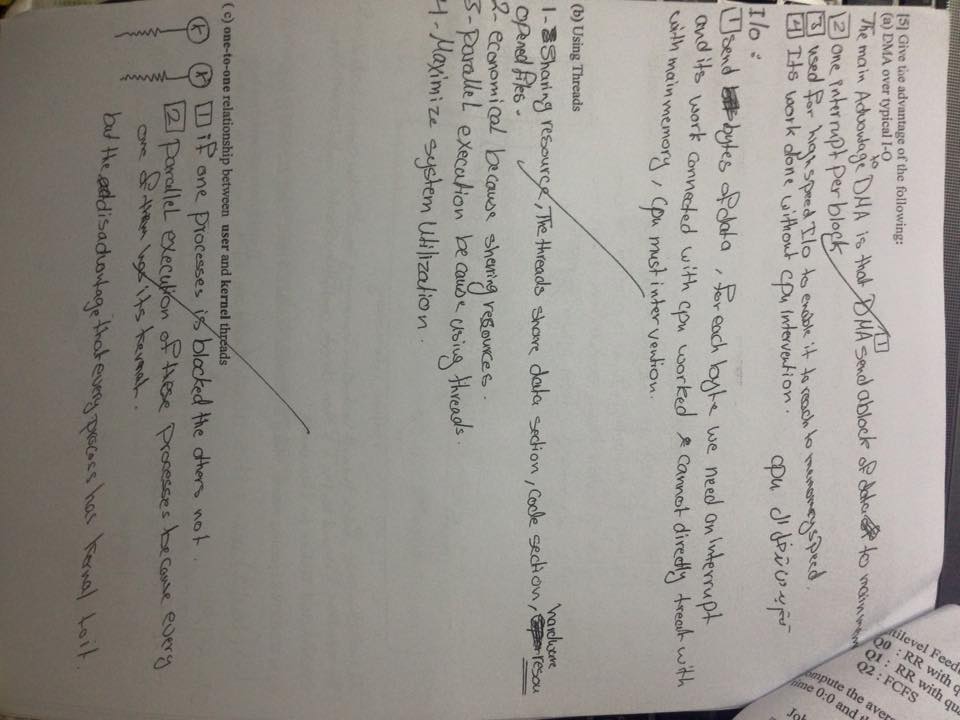 [5] Give the advantage of the following:
(a) DMA over typical I-O
The main Advantage to DMA is that [1] DMA send a block of data to main mem
[2] one interrupt per block
[3] used for high speed I/o to enable it to reach to memory speed.
[4] Its work done without cpu intervention. تتم بدون تدخل ال cpu
I/o :
[1] send bytes of data, for each byte we need an interrupt
and its work connected with cpu worked & cannot directly treat with
with main memory, cpu must intervention.
(b) Using Threads
1- Sharing resource, The threads share data section, code section, hardware resou
opened files.
2- economical because sherring resources.
3- parallel execution because using threads.
4- Maximize system Utilization.
( c) one-to-one relationship between user and kernel threads
K K [1] if one processes is blocked the others not.
[2] parallel execution of these processes because every
one of them has its kernal.
but the disadvantage that every process has kernal to it.
tilevel Feed
Q0 : RR with q
Q1 : RR with qu
Q2 : FCFS
mpute the aver
ime 0:0 and
Jo